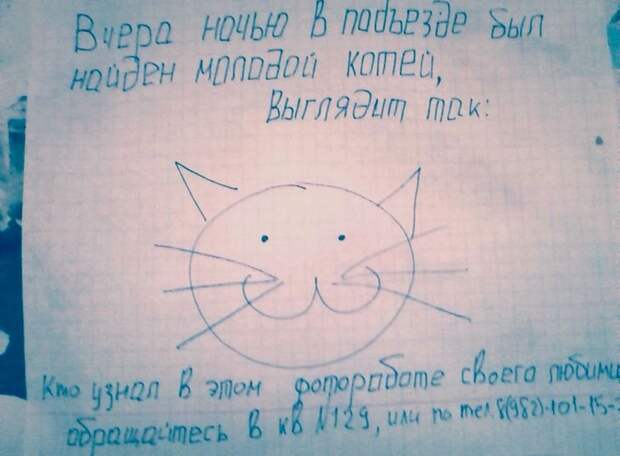 Вчера ночью в подъезде был
найден молодой котей,
Выглядит так:
Кто узнал в этом фотоработе своего
обращайтесь в кв №129, или по тел. 8(982)-101-15-